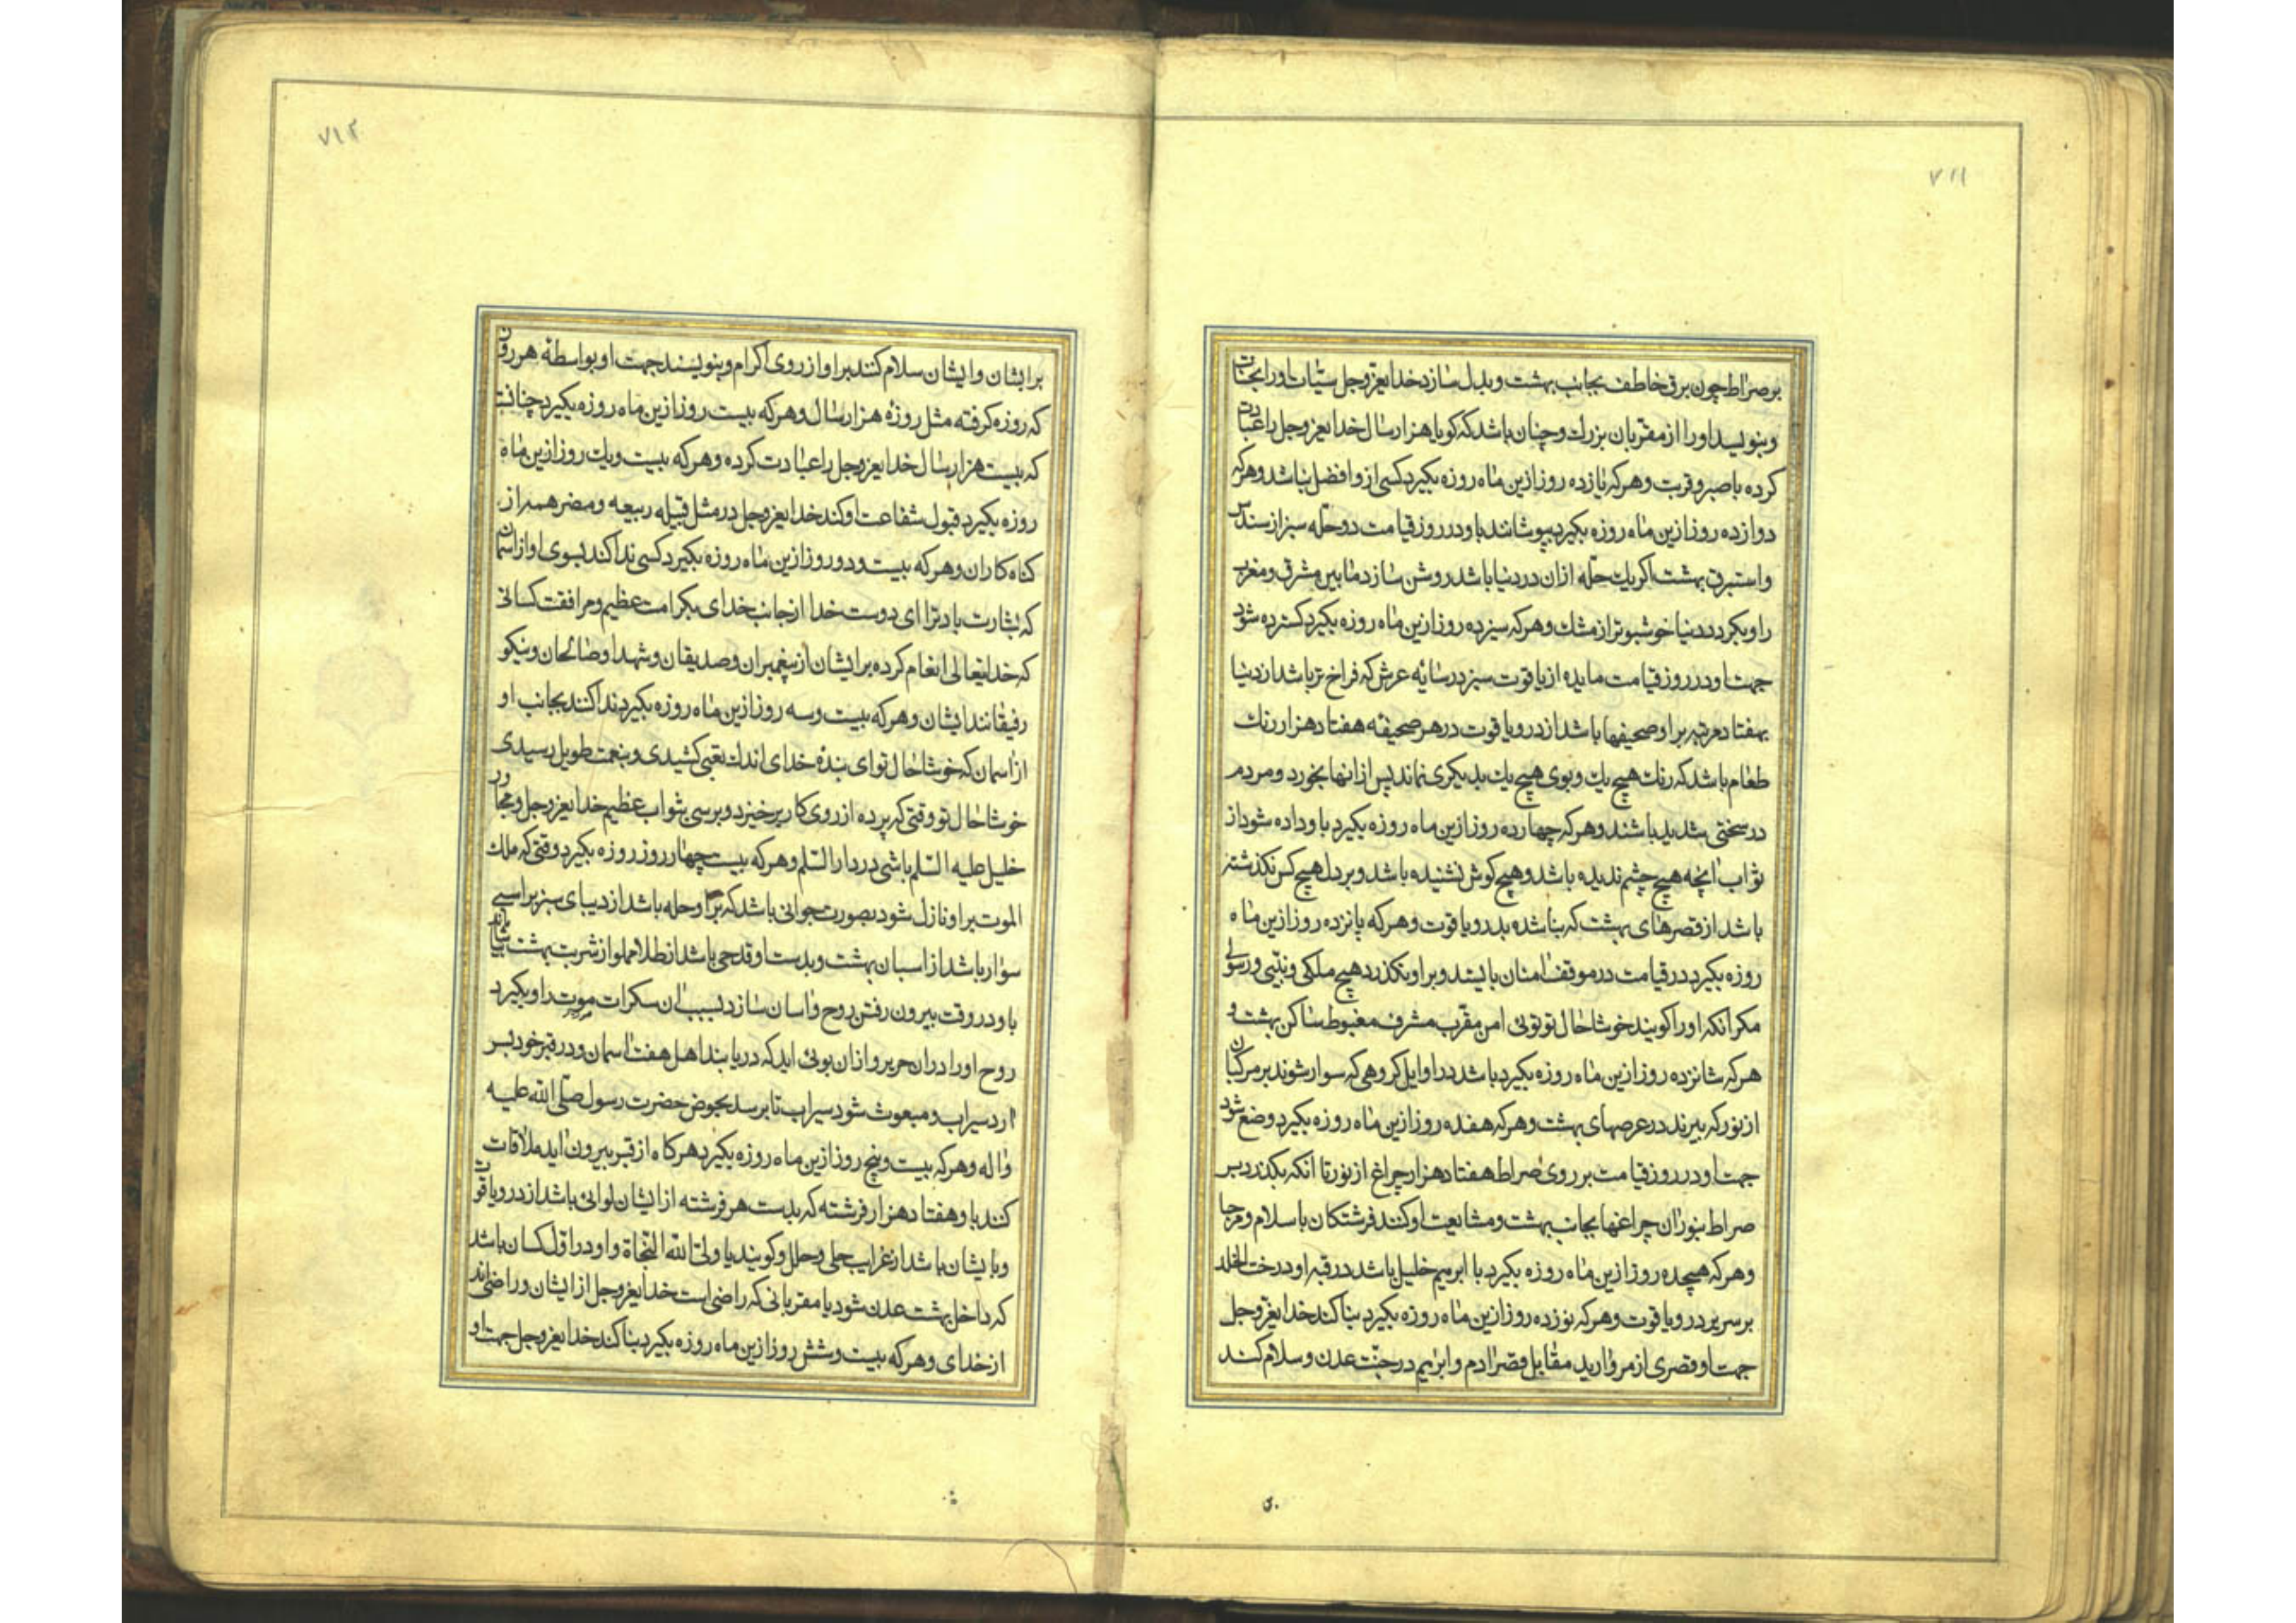 ۷۱۱
بر صراط چون برق خاطف بجانب بهشت و بدل سازد خدایعزوجل سیّات اورا بحسنات
و بنویسد اورا از مقربان بزرك و چنان باشد که کویا هزار سال خدایعزوجل را عبادت
کرده با صبر و قربت و هر که یازده روز ازین ماه روزه بکیرد کسی ازو افضل نباشد و هرکه
دوازده روز ازین ماه روزه بکیرد بپوشانند باو در روز قیامت دو حلّه سبز از سندس
و استبرق بهشت اکر یك حلّه ازان در دنیا باشد روشن سازد مابین مشرق و مغرب
را و بکردد دنیا خوشبوتر از مشك و هرکه سیزده روز ازین ماه روزه بکیرد کسترده شود
جهت او در روز قیامت مایده از یاقوت سبز در سایه عرش که فراخ تر باشد از دنیا
بهفتاد مرتبه بر او صحیفها باشد از در و یاقوت در هر صحیفه هفتاد هزار رنك
طعام باشد که رنك هیچ یك و بوی هیچ یك بدیکری نماند پس از انها بخورد و مردم
در سختی شدید باشند و هرکه چهارده روز ازین ماه روزه بکیرد باو داده شود از
ثواب انچه هیچ چشم ندیده باشد و هیچ کوش نشنیده باشد و بر دل هیچ کس نکذشته
باشد از قصرهای بهشت که بنا شده بدر و یاقوت و هرکه پانزده روز ازین ماه
روزه بکیرد در قیامت در موقف امنان بایستد و بر او نکذرد هیچ ملکی و نبیّی و رسولی
مکر انکه اورا کویند خوشا حال تو توئی امن مقرب مشرف مغبوط ساکن بهشت و
هرکه شانزده روز ازین ماه روزه بکیرد باشد در اوایل کروهی که سوار شوند بر مرکبان
از نور که بپرند در عرصهای بهشت و هرکه هفده روز ازین ماه روزه بکیرد وضع شود
جهت او در روز قیامت بر روی صراط هفتاد هزار چراغ از نور تا انکه بکذرد بر
صراط بنور ان چراغها بجانب بهشت و مشایعت او کنند فرشتکان با سلام و مرحبا
و هرکه هیجده روز ازین ماه روزه بکیرد با ابرهیم خلیل باشد در قبه او در خت الخلد
بر سریر در و یاقوت و هرکه نوزده روز ازین ماه روزه بکیرد بنا کند خدایعزوجل
جهت او قصری از مروارید مقابل قصر ادم و ابرهیم در جنّت عدن و سلام کند
۷۱۲
بر ایشان و ایشان سلام کنند بر او از روی اکرام و بنویسند جهت او بواسطه هر روزی
که روزه کرفته مثل روزه هزار سال و هرکه بیست روز ازین ماه روزه بکیرد چنانست
که بیست هزار سال خدایعزوجل را عبادت کرده و هرکه بیست و یك روز ازین ماه
روزه بکیرد قبول شفاعت او کند خدایعزوجل در مثل قبیله ربیعه و مضر همه از
کناه کاران و هرکه بیست و دو روز ازین ماه روزه بکیرد کسی ندا کند بسوی او از اسمان
که بشارت باد ترا ای دوست خدا از جانب خدای بکرامت عظیم و مرافقت کسانی
که خدایتعالی انعام کرده بر ایشان از پیغمبران و صدیقان و شهدا و صالحان و نیکو
رفیقانند ایشان و هرکه بیست و سه روز ازین ماه روزه بکیرد ندا کنند بجانب او
از اسمان که خوشا حال تو ای بنده خدای اندك تعبی کشیدی و بنعمت طویل رسیدی
خوشا حال تو وقتی که پرده از روی کار برخیزد و برسی بثواب عظیم خدایعزوجل و مجاور
خلیل علیه السّلم باشی در دار السّلم و هرکه بیست چهار روز روزه بکیرد وقتی که ملك
الموت بر او نازل شود بصورت جوانی باشد که بر او حله باشد از دیبای سبز بر اسبی
سوار باشد از اسبان بهشت و بدست او قدحی باشد از طلا مملو از شربت بهشت بیاشاماند
باو در وقت بیرون رفتن روح و اسان سازد بسبب ان سکرات موت را و بکیرد
روح اورا دران حریر و ازان بوئی اید که دریابند اهل هفت اسمان و در قبر خود بسر
ارد سیراب و مبعوث شود سیراب تا برسد بحوض حضرت رسول صلّی الله علیه
و اله و هرکه بیست و پنج روز ازین ماه روزه بکیرد هرکاه از قبر بیرون اید ملاقات
کنند باو هفتاد هزار فرشته که بدست هر فرشته از ایشان لوائی باشد از در و یاقوت
و با ایشان باشد از غرایب حلی و حلل و کویند یا ولیّ الله النجاة و او در اوّل کسان باشد
که داخل بهشت عدن شود با مقربانی که راضی است خدایعزوجل از ایشان و راضی اند
از خدای و هرکه بیست و شش روز ازین ماه روزه بکیرد بنا کند خدایعزوجل جهت او